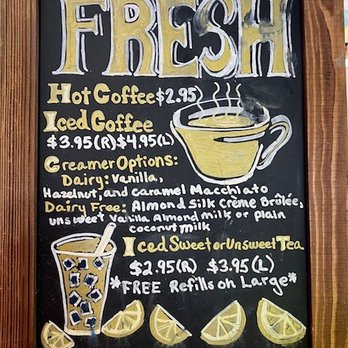 FRESH
Hot Coffee $2.95
Iced Coffee
$3.95(R) $4.95(L)
Creamer Options:
Dairy: Vanilla,
Hazelnut, and Caramel Macchiato
Dairy Free: Almond Silk Crème Brûlée,
unsweet Vanilla Almond milk or plain
coconut milk
Iced Sweet or Unsweet Tea
$2.95(R) $3.95(L)
*FREE Refills on Large*